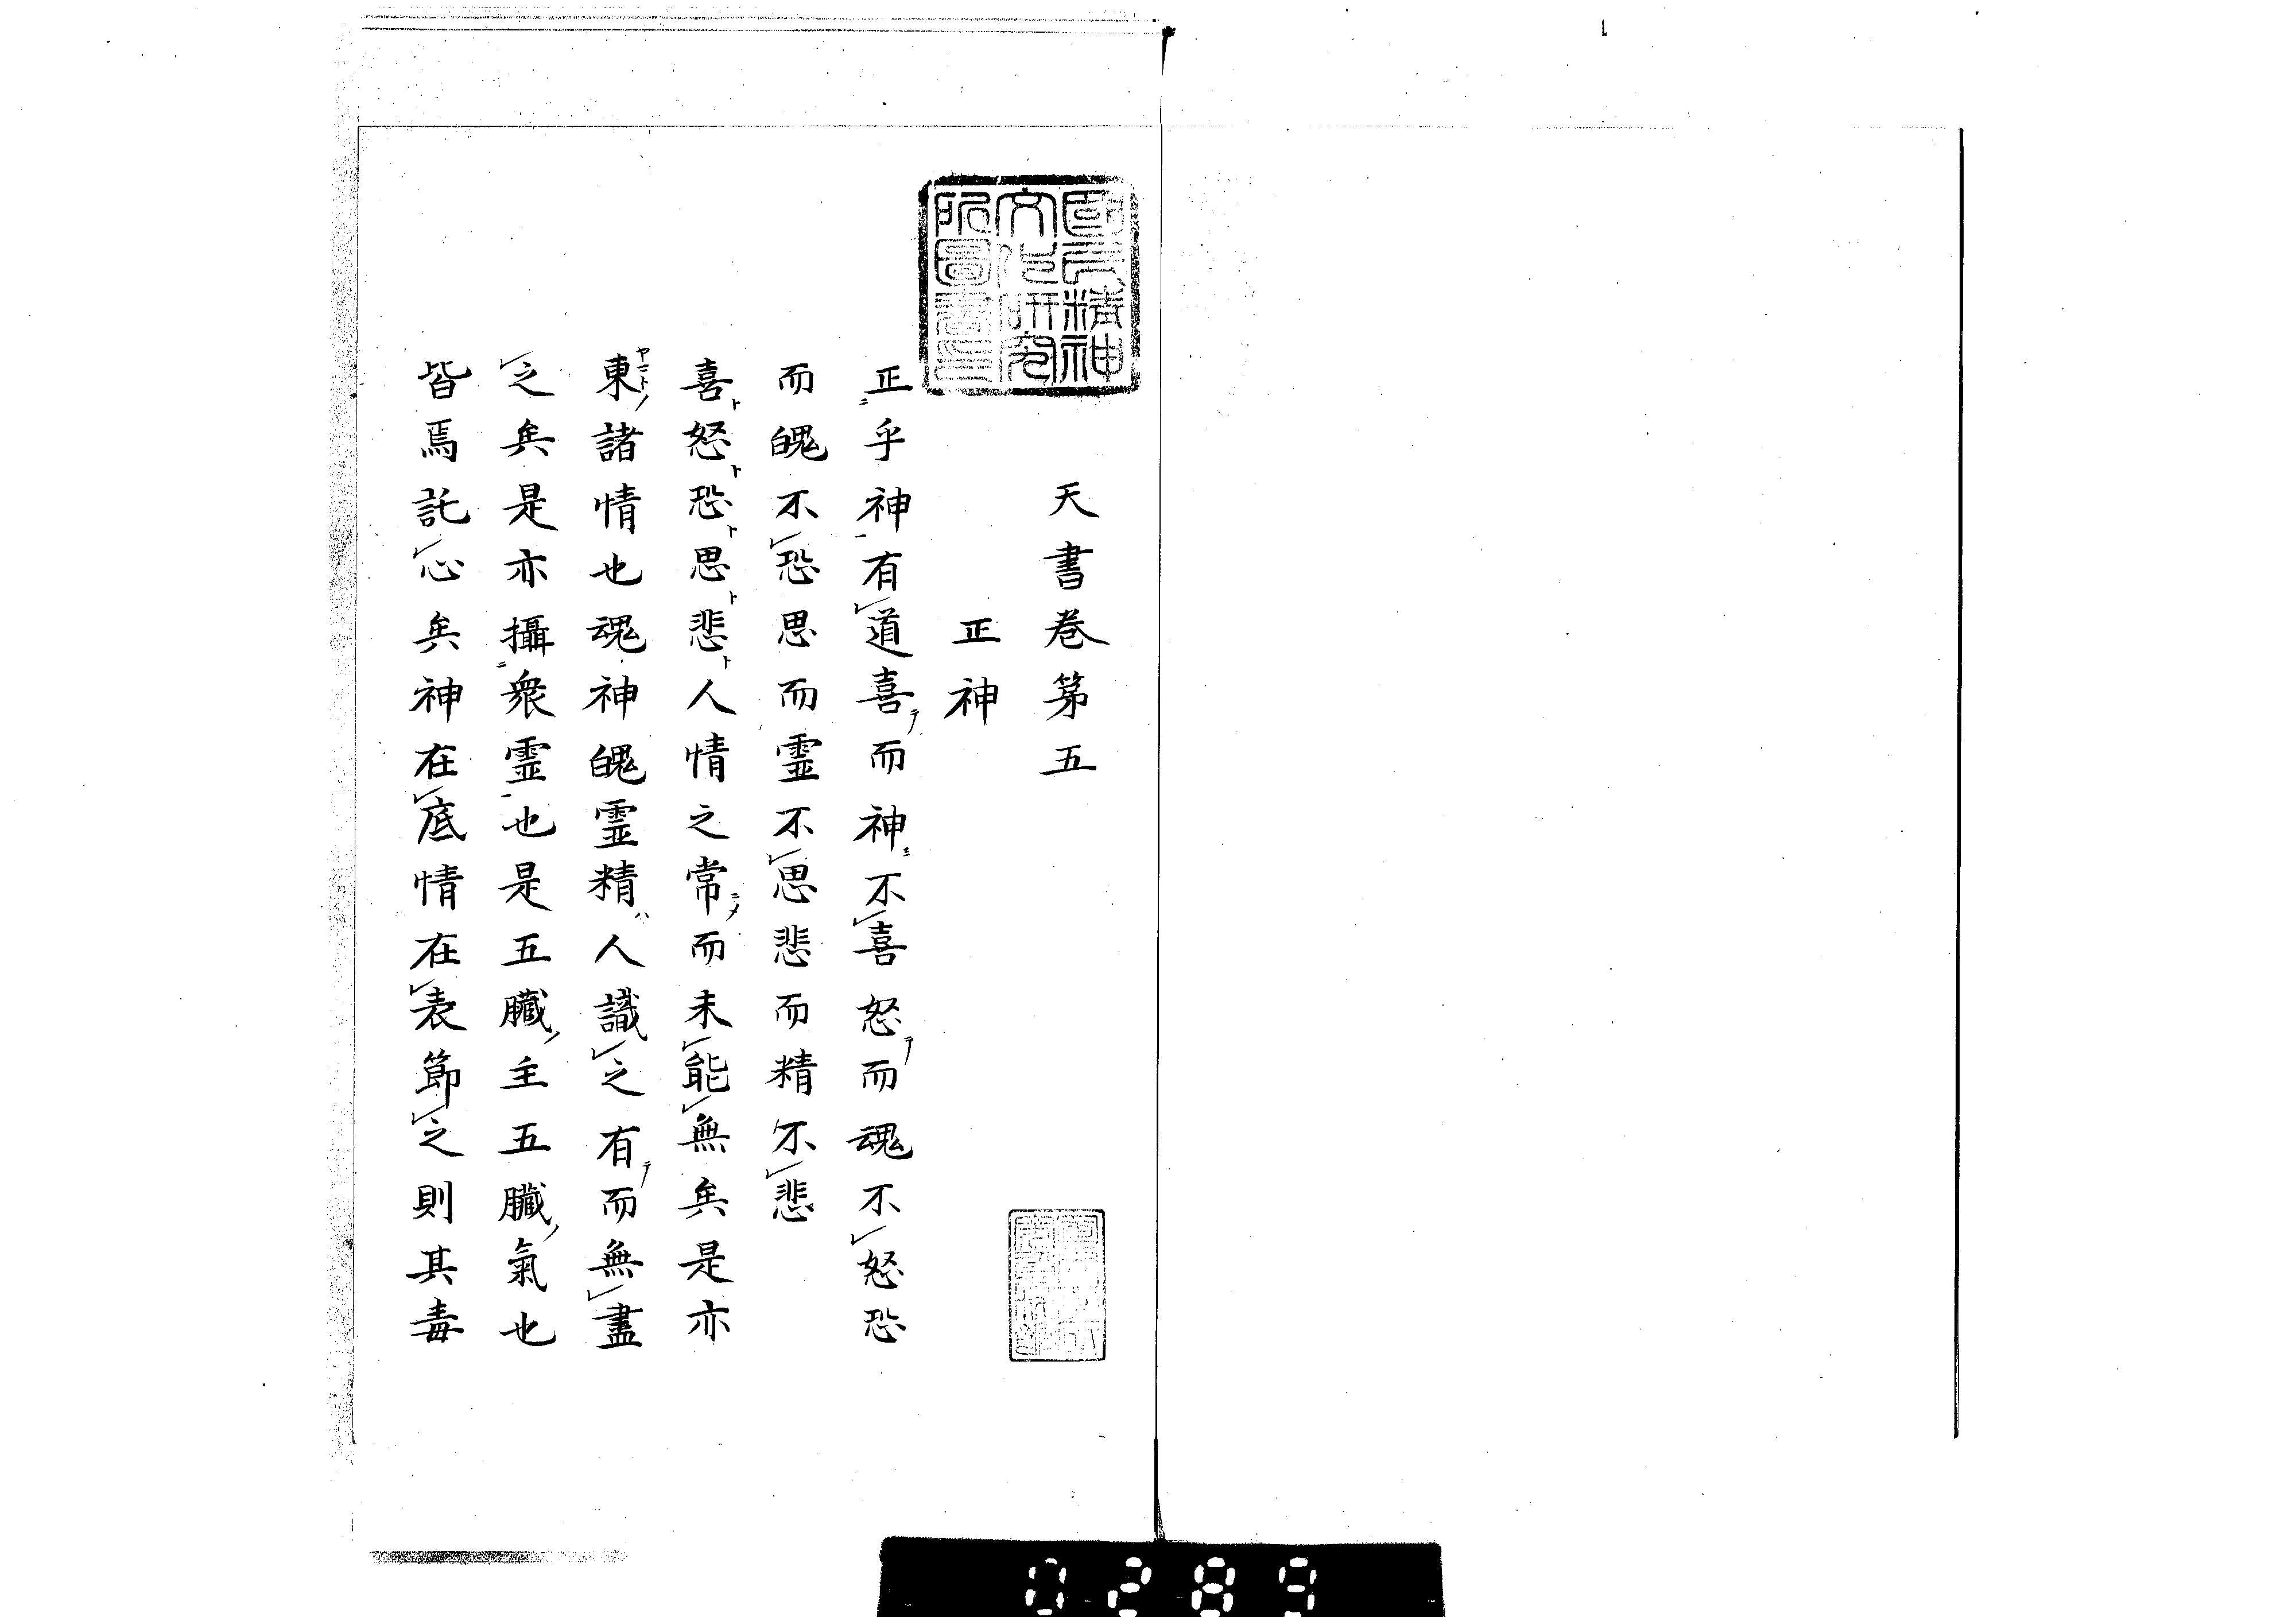 國民精神
文化研究
所圖書印
天書卷第五
正神
正乎神有道喜而神不喜怒而魂不怒恐
而魄不恐思而霊不思悲而精不悲
喜怒恐思悲人情之常而未能無矣是亦
東諸情也魂神魄霊精人識之有而無盡
之矣是亦攝衆霊也是五臓主五臓氣也
皆焉託心矣神在底情在表節之則其毒
0289